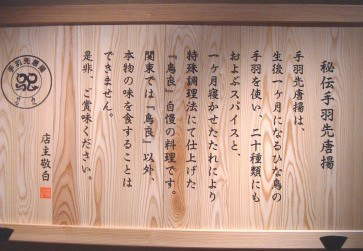 秘伝手羽先唐揚
手羽先唐揚は、
生後一ヶ月になるひな鳥の
手羽を使い、二十種類にも
およぶスパイスと、
一ヶ月寝かせたたれにより
特殊調理法にて仕上げた
『鳥良』自慢の料理です。
関東では『鳥良』以外、
本物の味を食することは
できません。
是非、ご賞味ください。
店主敬白
手羽先唐揚